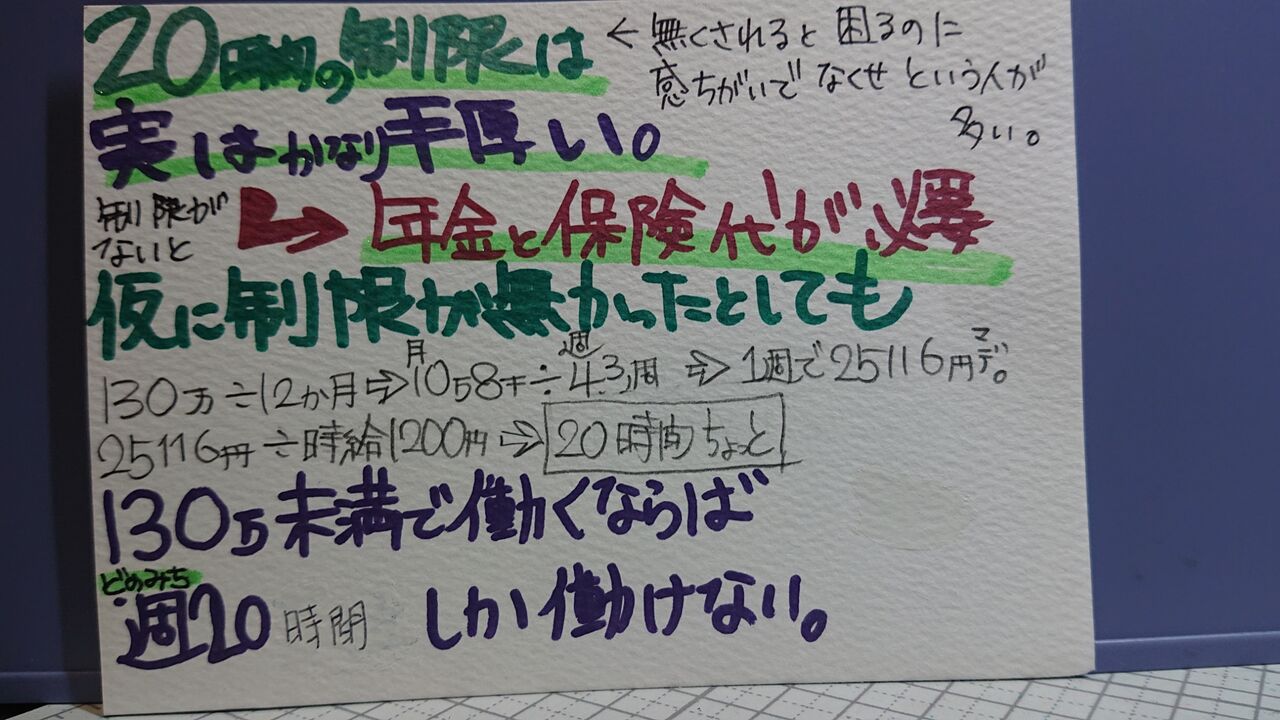 20時間の制限は
←無くされると困るのに
感ちがいでなくせという人が
多い。
実はかなり手厚い。
制限が
ないと
年金と保険代が必要
仮に制限が無かったとしても
130万÷12か月⇨月1058千÷4.3週週⇨1週で25116円マデ。
25116円÷時給1200円⇨20時間ちょっと
130万未満で働くならば
どのみち
週20時間 しか働けない。